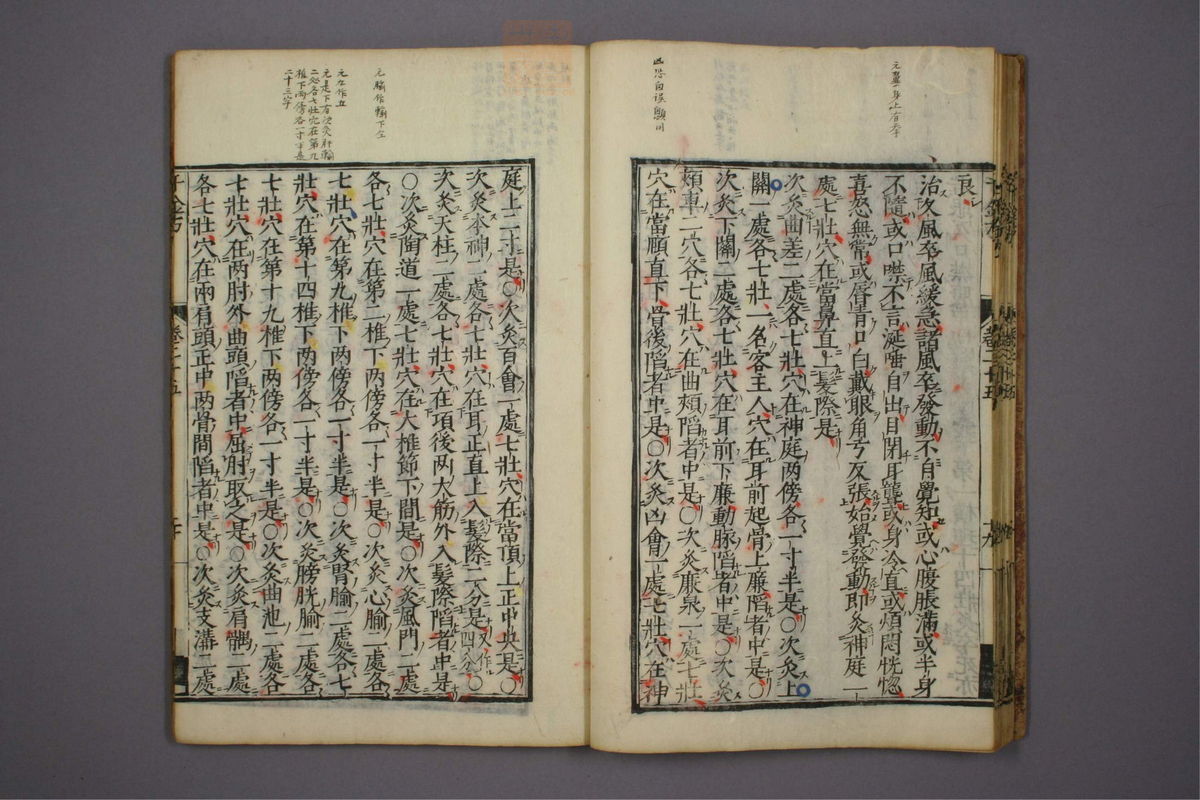 元翼身上有本字
凶恐囟误顖同
良
治久風卒風緩急諸風卒發動不自覺知或心腹脹滿或半身
不隨或口噤不言涎唾自出目閉耳聾或身冷直或煩悶恍惚
喜怒無常或唇青口白戴眼角弓反張始覺發動即灸神庭一
處七壯穴在當鼻直上髮際是
次灸曲差二處各七壯穴在神庭兩傍各一寸半是○次灸上
關二處各七壯一名客主人穴在耳前起骨上廉陷者中是○
次灸下關二處各七壯穴在耳前下廉動脉陷者中是○次灸
頰車二穴各七壯穴在曲頰陷者中是○次灸廉泉一處七壯
穴在當頤直下骨後陷者中是○次灸凶會一處七壯穴在神
卷二十五
十九
元腧作輸下仝
元左作五
元是下有次灸肝腧
二處各七壯穴在第九
椎下兩傍各一寸半是
二十三字
庭上二寸是○次灸百會一處七壯穴在當頂上正中央是○
次灸本神二處各七壯穴在耳正直上入髮際二分是又作四分○
次灸天柱二處各七壯穴在項後两大筋外入髮際陷者中是
○次灸陶道一處七壯穴在大椎節下間是○次灸風門二處
各七壯穴在第二椎下两傍各一寸半是○次灸心腧二處各
七壯穴在第九椎下两傍各一寸半是○次灸腎腧二處各七
壯穴在第十四椎下两傍各一寸半是○次灸膀胱腧二處各
七壯穴在第十九椎下两傍各一寸半是○次灸曲池二處各
七壯穴在两肘外曲頭陷者中屈肘取之是○次灸肩髃二處
各七壯穴在兩肩頭正中两骨間陷者中是○次灸支溝二處
千金方
卷二十五
二十